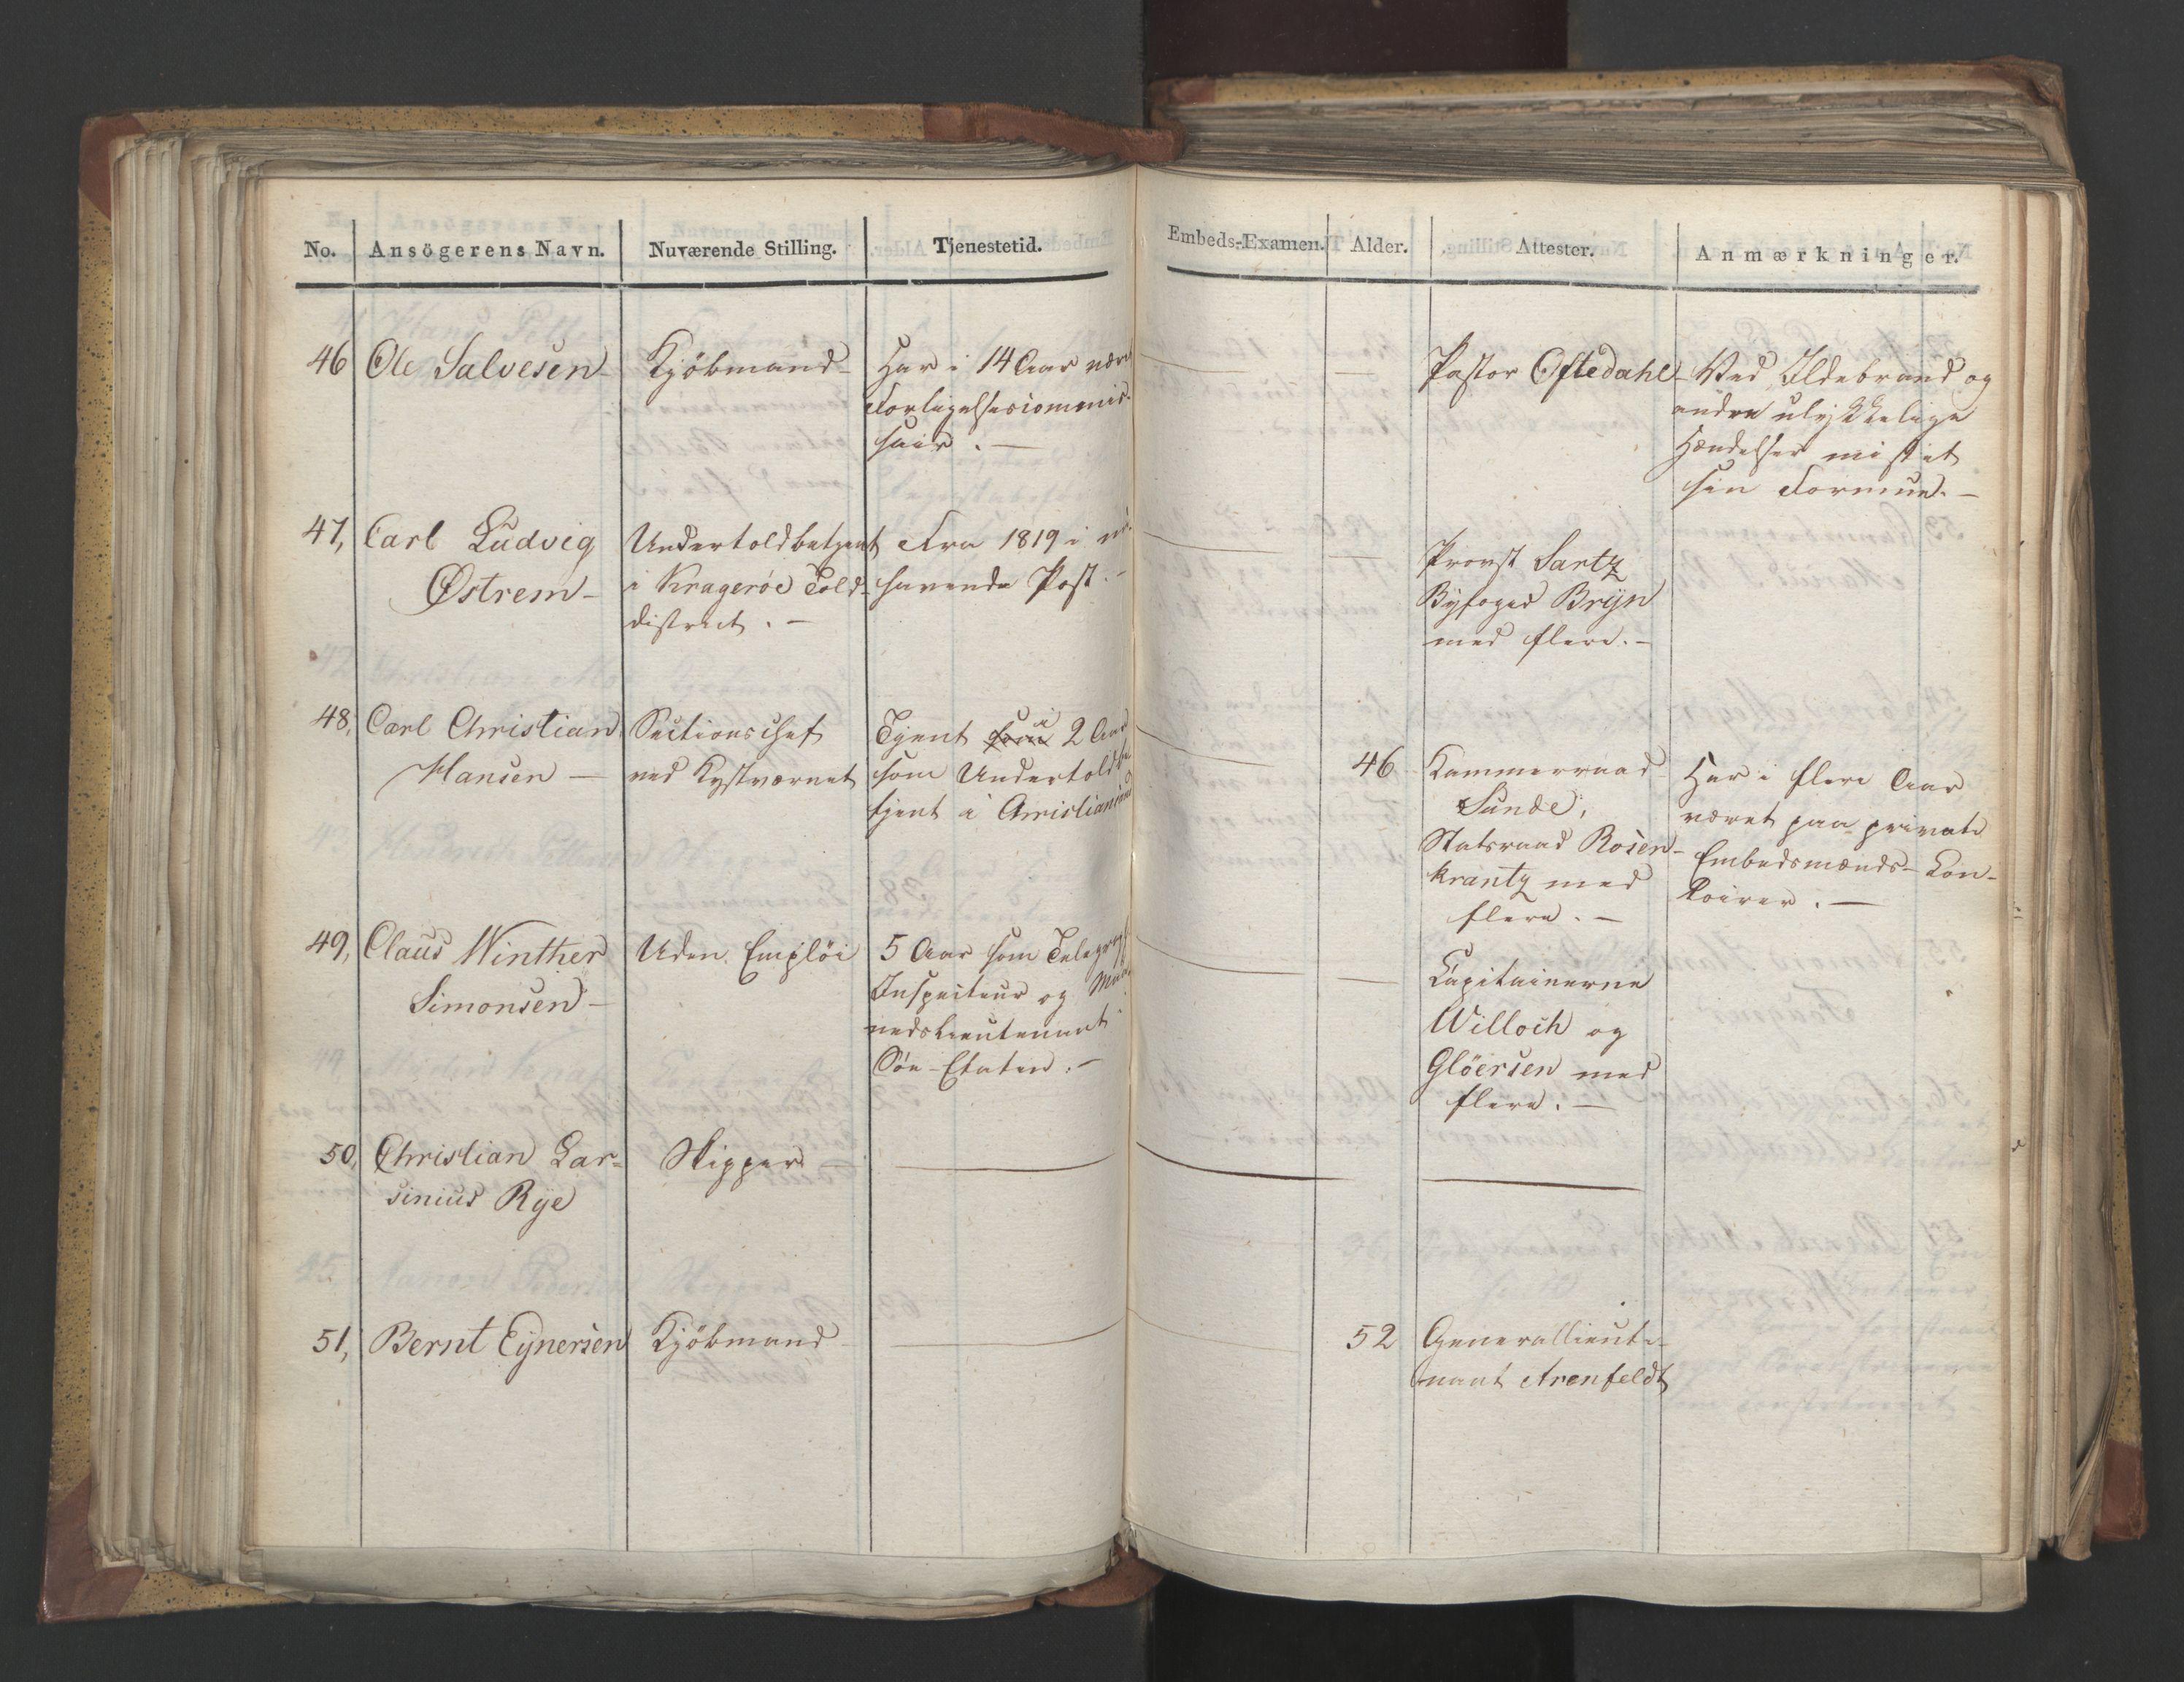 No. Ansögerens Navn. Nuværende Stilling. Tjenestetid. Embeds-Examen. Alder. Attester. Anmærkninger.
46 Ole Salvesen
Kjöbmand
Har i 14 Aar været
Forligelsescommis-
sair. —
Pastor Oftedahl
Ved Ildebrand og
andre ulykkelige
Hændelser mistet
sin Formue. —
47, Carl Ludvig
Østrem -
Undertoldbetjent
i Kragerøe Told-
district. -
Fra 1819 i
havende Post. -
Provst Sartz
Byfoged Bryn
med flere. -
48, Carl Christian
Hansen —
Sectionschef
ved Kystværnet
Tjent i 2 Aar
som Undertoldbe
tjent i Christiansund
46
Kammerraad
Sunde,
Statsraad Rosen-
krantz med
flere. -
Har i flere Aar
været paa private
Embedsmænds-Con-
toirer. —
49, Claus Winther
Simonsen -
Uden Emplöi
5 Aar som Telegraph
Inspecteur og Maa
nedslieutenant i
Söe-Etaten. -
Capitainerne
Willoch og
Glöersen med
flere. —
50, Christian Lar-
sinius Rye
Skipper
51, Bernt Eynersen
Kjöbmand
52
Generallieute-
nant Arenfeldt